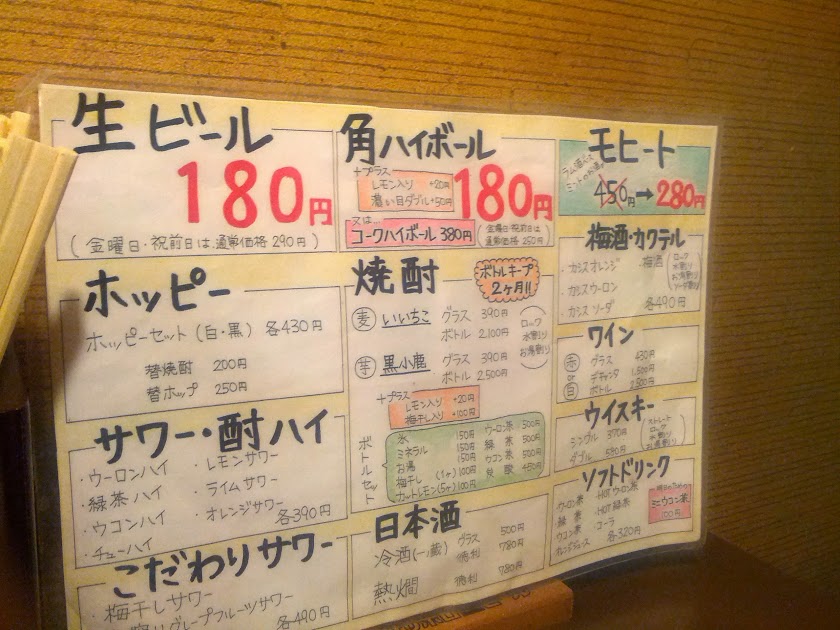 生ビール
180円
(金曜日・祝前日は、通常価格290円)
角ハイボール
+プラス
レモン入り +20円
濃い目ダブル+50円
180円
又は…
コークハイボール 380円
(金曜日・祝前日は
通常価格250円)
モヒート
450円→280円
ホッピー
ホッピーセット(白・黒) 各430円
替焼酎 200円
替ホップ 250円
焼酎
ボトルキープ
2ヶ月!!
麦 いいちこ グラス 390円
ボトル 2,100円
芋 黒小鹿 グラス 390円
ボトル 2,500円
(ロック
水割り
お湯割り)
+プラス
レモン入り +20円
梅干し入り +100円
ボトルセット
氷 150円
ミネラル 150円
お湯 150円
梅干し (1ヶ) 100円
カットレモン(5ヶ) 100円
ウーロン茶 500円
緑茶 500円
ウコン茶 500円
炭酸 450円
梅酒・カクテル
・カシスオレンジ
・カシスウーロン
・カシスソーダ
梅酒(ロック
水割り
お湯割り
ソーダ割り)
各490円
ワイン
赤 or 白
グラス 430円
デキャンタ 1,500円
ボトル 2,500円
ウイスキー
シングル 370円
ダブル 540円
(ストレート
ロック
水割り
お湯割り)
サワー・酎ハイ
・ウーロンハイ
・緑茶ハイ
・ウコンハイ
・チューハイ
・レモンサワー
・ライムサワー
・オレンジサワー
各390円
日本酒
冷酒(一蔵) グラス 500円
徳利 780円
熱燗 徳利 780円
ソフトドリンク
ウーロン茶
緑茶
ウコン茶
オレンジジュース
HOTウーロン茶
HOT緑茶
コーラ
各320円
ミニウコン茶
100円
こだわりサワー
・梅干しサワー
グレープフルーツサワー
各490円